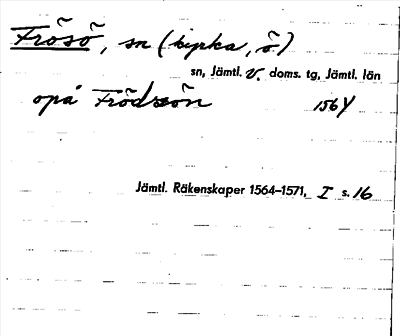 Frösö, sn (kyrka, ö)
sn, Jämtl. v. doms. tg, Jämtl. län
opå Frödzsön 1564
Jämtl. Räkenskaper 1564–1571, I s. 16